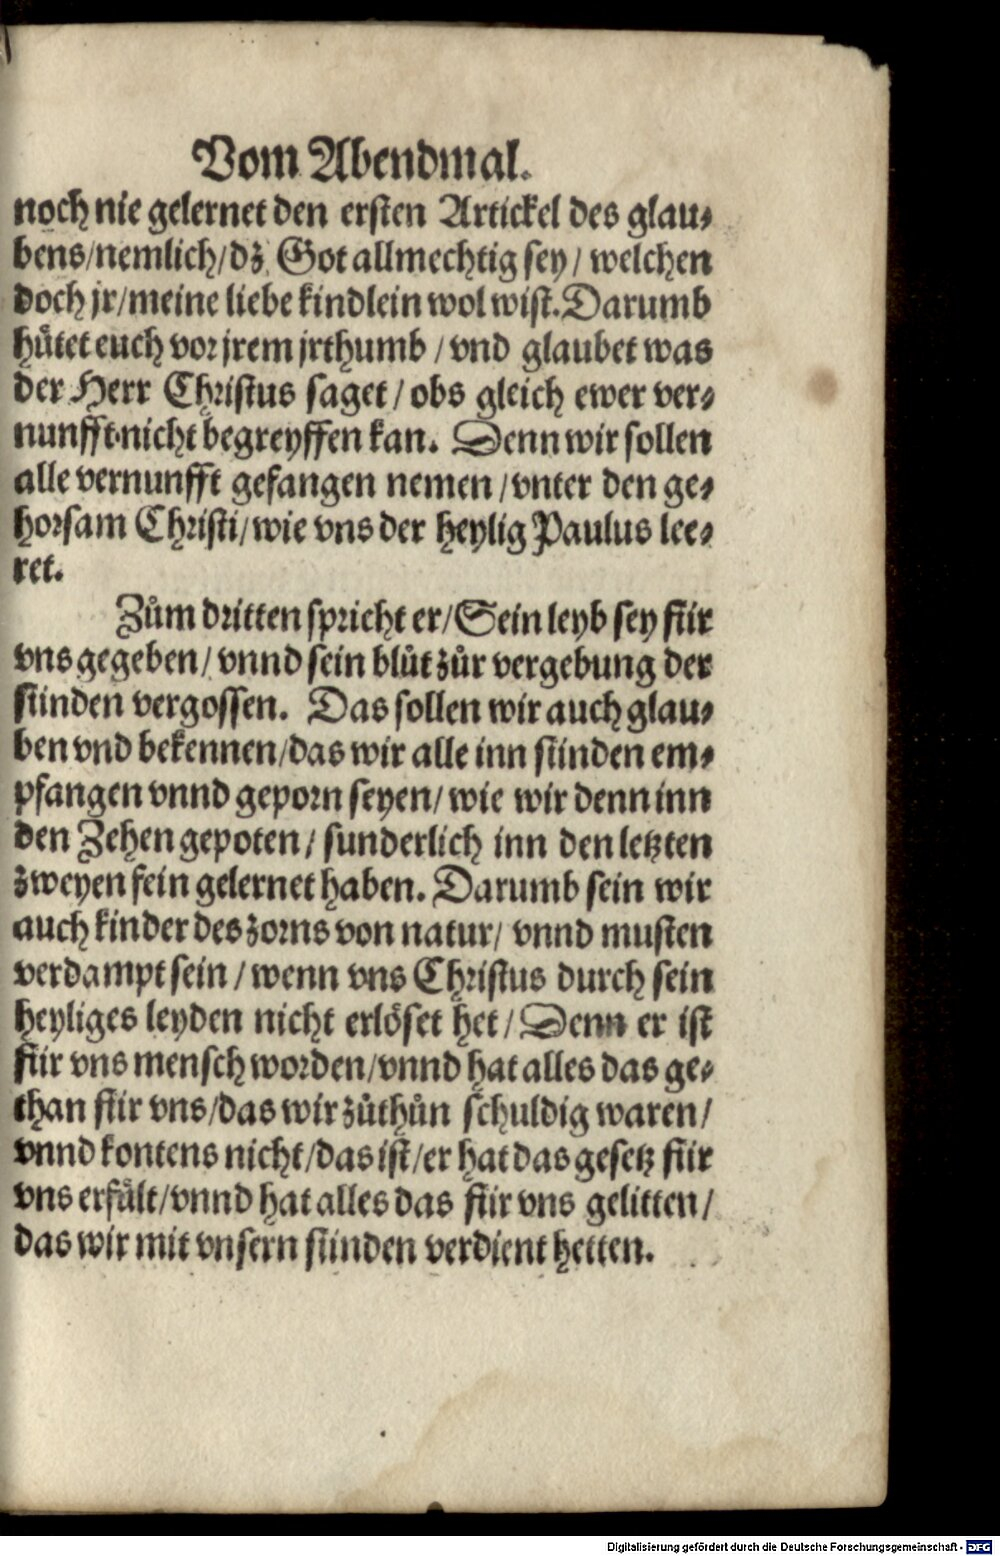 Vom Abendmal.
noch nie gelernet den ersten Artickel des glau⸗
bens/nemlich/dz Got allmechtig sey/ welchen
doch jr/meine liebe kindlein wol wist. Darumb
huͤtet euch vor jrem jrthumb / vnd glaubet was
der Herr Christus saget / obs gleich ewer ver⸗
nunfft nicht begreyffen kan. Denn wir sollen
alle vernunfft gefangen nemen / vnter den ge⸗
horsam Christi/ wie vns der heylig Paulus lee⸗
ret.
Zům dritten spricht er/ Sein leyb sey für
vns gegeben/ vnnd sein blůt zůr vergebung der
sünden vergossen. Das sollen wir auch glau⸗
ben vnd bekennen/das wir alle inn sünden em⸗
pfangen vnnd geporn seyen/ wie wir denn inn
den Zehen gepoten / sunderlich inn den letzten
zweyen fein gelernet haben. Darumb sein wir
auch kinder des zorns von natur/ vnnd musten
verdampt sein / wenn vns Christus durch sein
heyliges leyden nicht erlöset het / Denn er ist
für vns mensch worden/vnnd hat alles das ge⸗
than für vns/das wir zůthůn schuldig waren/
vnnd kontens nicht/das ist/er hat das gesetz für
vns erfült/vnnd hat alles das für vns gelitten/
das wir mit vnsern sünden verdient hetten.
Digitalisierung gefördert durch die Deutsche Forschungsgemeinschaft - DFG